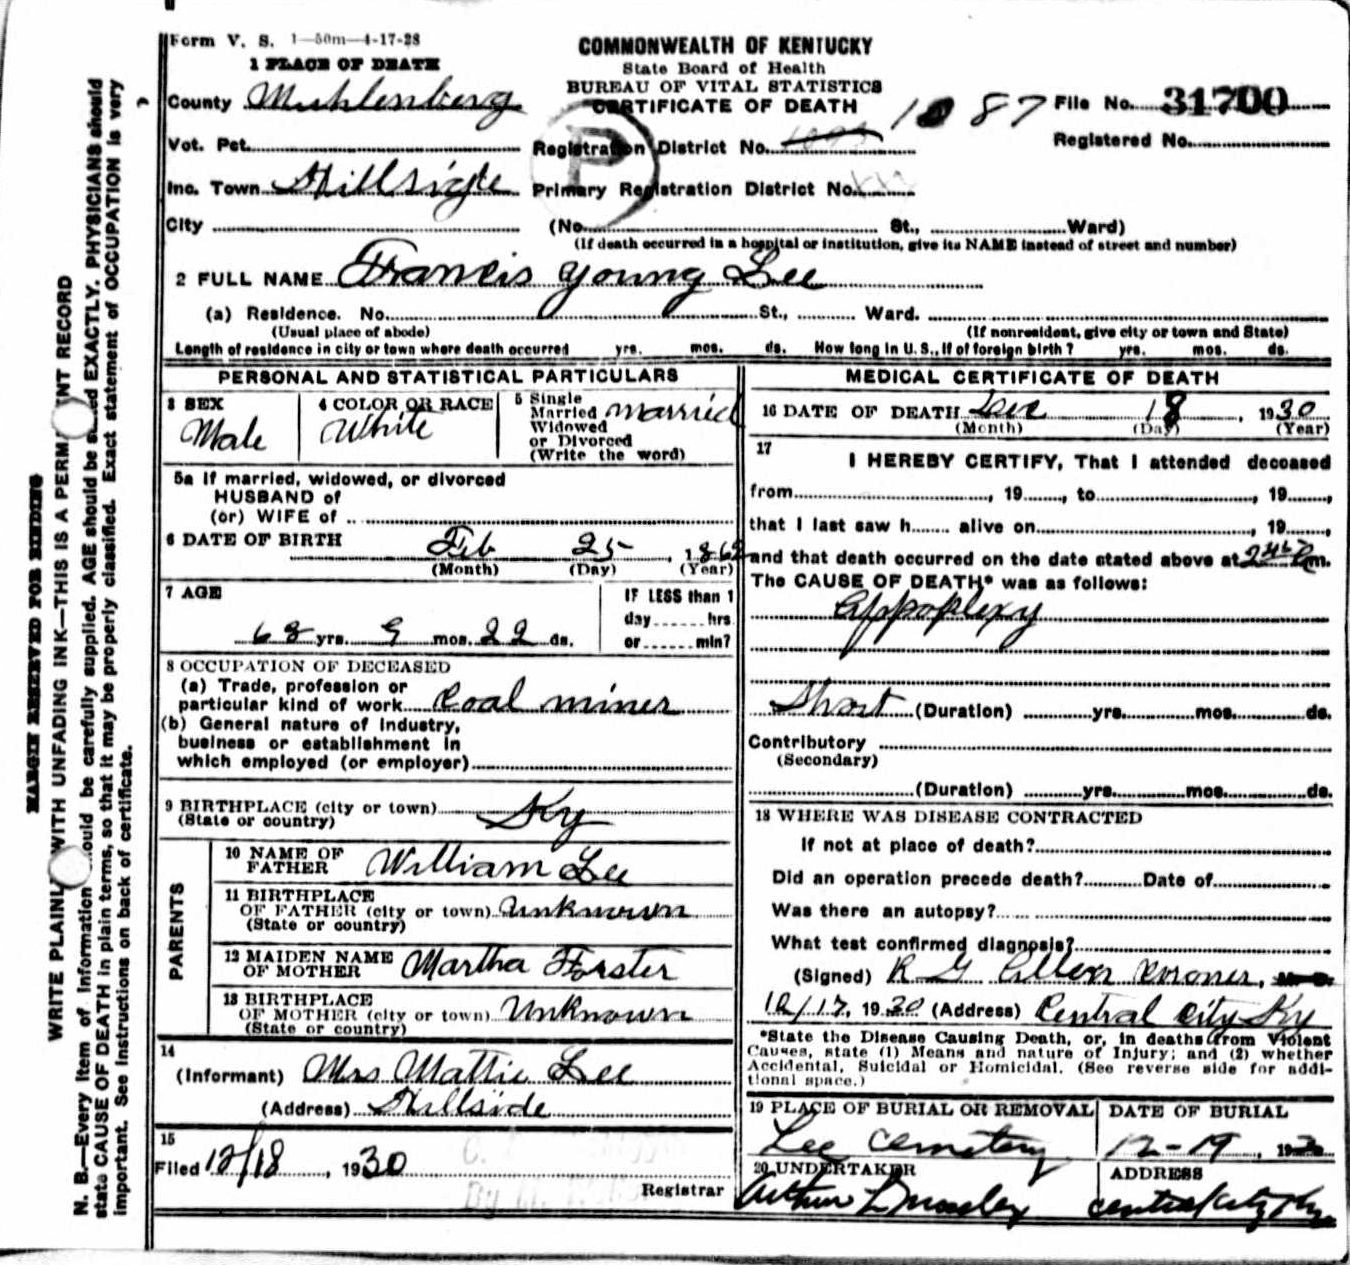 Form V. S. 1—50m—4-17-28
COMMONWEALTH OF KENTUCKY
State Board of Health
BUREAU OF VITAL STATISTICS
CERTIFICATE OF DEATH
1 PLACE OF DEATH
County Muhlenberg
File No. 31700
Vot. Pct.
Registration District No. 1087
Registered No.
Inc. Town Hillside
Primary Registration District No.
P
City
(No. St., Ward)
(If death occurred in a hospital or institution, give its NAME instead of street and number)
2 FULL NAME Francis Young Lee
(a) Residence. No. St., Ward.
(Usual place of abode) (If nonresident, give city or town and State)
Length of residence in city or town where death occurred yrs. mos. ds. How long in U. S., if of foreign birth? yrs. mos. ds.
PERSONAL AND STATISTICAL PARTICULARS
3 SEX
Male
4 COLOR OR RACE
White
5 Single
Married
Widowed
or Divorced
(Write the word)
married
5a If married, widowed, or divorced
HUSBAND of
(or) WIFE of
6 DATE OF BIRTH Feb 25, 1862
(Month) (Day) (Year)
7 AGE
68 yrs. 9 mos. 22 ds.
IF LESS than 1
day......hrs
or......min?
8 OCCUPATION OF DECEASED
(a) Trade, profession or
particular kind of work Coal miner
(b) General nature of industry,
business or establishment in
which employed (or employer)
9 BIRTHPLACE (city or town) Ky
(State or country)
PARENTS
10 NAME OF
FATHER William Lee
11 BIRTHPLACE
OF FATHER (city or town) Unknown
(State or country)
12 MAIDEN NAME
OF MOTHER Martha Forster
13 BIRTHPLACE
OF MOTHER (city or town) Unknown
(State or country)
14
(Informant) Mrs Mattie Lee
(Address) Hillside
15
Filed 12/18, 1930
Registrar
MEDICAL CERTIFICATE OF DEATH
16 DATE OF DEATH Dec 18, 1930
(Month) (Day) (Year)
17
I HEREBY CERTIFY, That I attended deceased
from, 19, to, 19,
that I last saw h alive on, 19,
and that death occurred on the date stated above at m.
The CAUSE OF DEATH* was as follows:
Appoplexy
Short (Duration) yrs. mos. ds.
Contributory
(Secondary)
(Duration) yrs. mos. ds.
18 WHERE WAS DISEASE CONTRACTED
If not at place of death?
Did an operation precede death? Date of
Was there an autopsy?
What test confirmed diagnosis?
(Signed) R G Coroner, M. D.
12/17, 1930 (Address) Central City Ky
*State the Disease Causing Death, or, in deaths from Violent
Causes, state (1) Means and nature of Injury; and (2) whether
Accidental, Suicidal or Homicidal. (See reverse side for addi-
tional space.)
19 PLACE OF BURIAL OR REMOVAL
Lee Cemetery
DATE OF BURIAL
12-19, 1930
20 UNDERTAKER
Arthur
ADDRESS
Central City Ky
MARGIN RESERVED FOR BINDING
WRITE PLAINLY WITH UNFADING INK—THIS IS A PERMANENT RECORD
N. B.—Every item of information should be carefully supplied. AGE should be stated EXACTLY. PHYSICIANS should
state CAUSE OF DEATH in plain terms, so that it may be properly classified. Exact statement of OCCUPATION is very
important. See instructions on back of certificate.